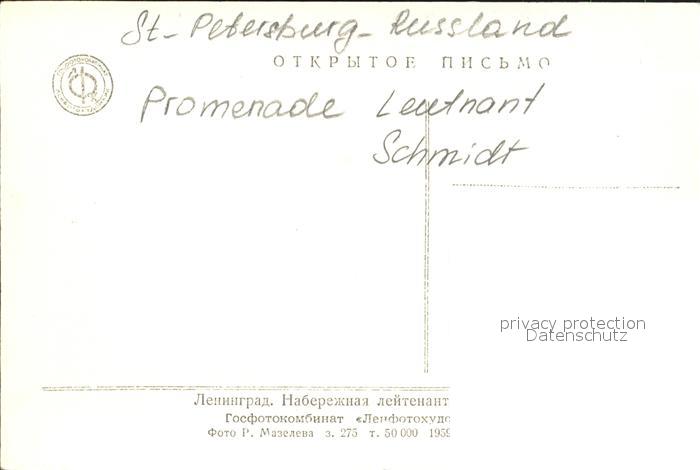 St-Petersburg-Russland
ОТКРЫТОЕ ПИСЬМО
Promenade Leutnant
Schmidt
privacy protection
Datenschutz
Ленинград. Набережная лейтенант
Госфотокомбинат «Ленфотохудо
Фото Р. Мазелева з. 275 т. 50 000 1959